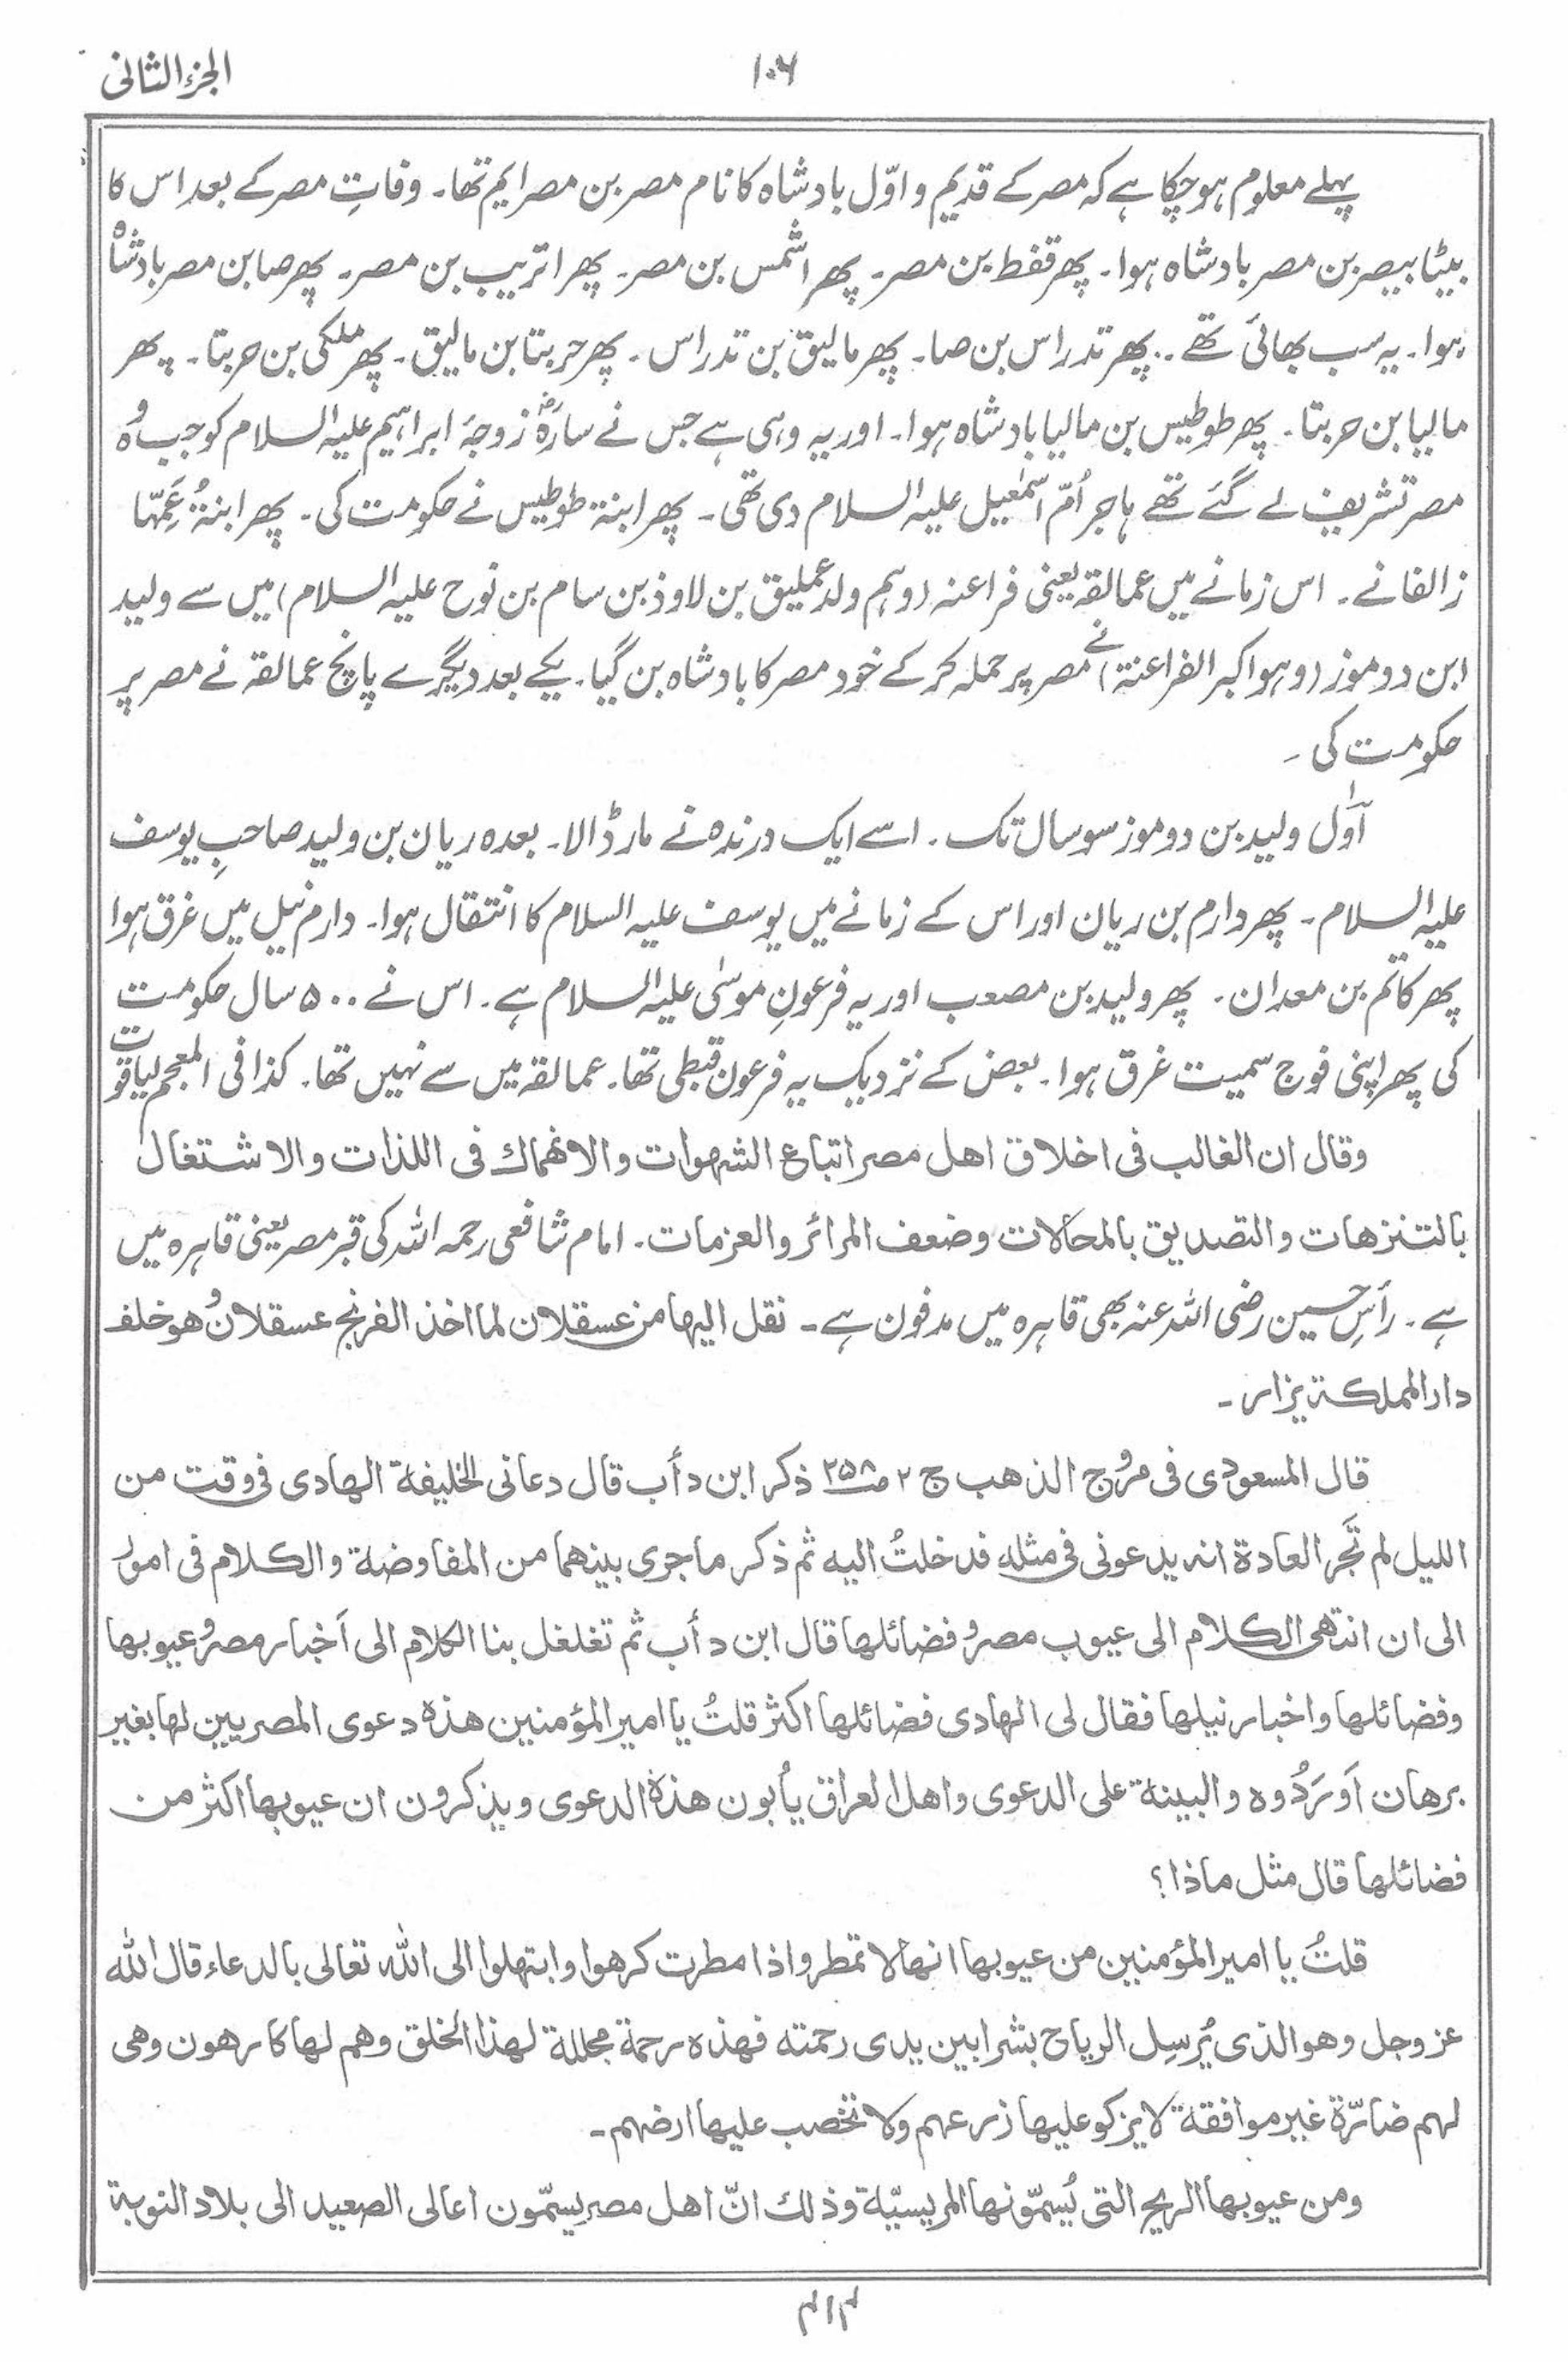 الجزء الثانی
۱۰۶
پہلے معلوم ہو چکا ہے کہ مصر کے قدیم و اوّل بادشاہ کا نام مصر بن مصرایم تھا۔ وفاتِ مصر کے بعد اس کا
بیٹا بیصر بن مصر بادشاہ ہوا۔ پھر قفط بن مصر۔ پھر اشمس بن مصر۔ پھر اتریب بن مصر۔ پھر صا بن مصر بادشاہ
ہوا۔ یہ سب بھائی تھے۔ پھر تدراس بن صا۔ پھر مالیق بن تدراس۔ پھر حربتا بن مالیق۔ پھر ملکی بن حربتا۔ پھر
مالیا بن حربتا۔ پھر طوطیس بن مالیا بادشاہ ہوا۔ اور یہ وہی ہے جس نے سارَہؓ زوجۂ ابراہیم علیہ السلام کو جب وُہ
مصر تشریف لے گئے تھے ہاجر اُمّ اسمٰعیل علیہ السلام دی تھی۔ پھر ابنۃ طوطیس نے حکومت کی۔ پھر ابنۃُ عَمِّہا
زالفا نے۔ اس زمانے میں عمالقہ یعنی فراعنہ (وہم ولد عملیق بن لاوذ بن سام بن نوح علیہ السلام) میں سے ولید
ابن دوموز (وہو اکبر الفراعنۃ) نے مصر پر حملہ کر کے خود مصر کا بادشاہ بن گیا۔ یکے بعد دیگرے پانچ عمالقہ نے مصر پر
حکومت کی۔
اَوّل ولید بن دوموز سو سال تک۔ اسے ایک درندہ نے مار ڈالا۔ بعدہ ریان بن ولید صاحبِ یوسف
علیہ السلام۔ پھر دارم بن ریان اور اس کے زمانے میں یوسف علیہ السلام کا انتقال ہوا۔ دارم نیل میں غرق ہوا
پھر کاتم بن معدان۔ پھر ولید بن مصعب اور یہ فرعونِ موسٰی علیہ السلام ہے۔ اس نے ۵۰۰ سال حکومت
کی پھر اپنی فوج سمیت غرق ہوا۔ بعض کے نزدیک یہ فرعون قبطی تھا۔ عمالقہ میں سے نہیں تھا۔ کذا فی المعجم لیاقوت
وقال ان الغالب فی اخلاق اهل مصر اتباع الشهوات والانهماك فی اللذات والاشتغال
بالتنزهات والتصدیق بالمحالات وضعف المرائر والعزمات۔ امام شافعی رحمہ اللہ کی قبر مصر یعنی قاہرہ میں
ہے۔ رأسِ حسین رضی اللہ عنہ بھی قاہرہ میں مدفون ہے۔ نقل الیها من عسقلان لما اخذ الفرنج عسقلان وُهو خلف
دار المملكة یزار۔
قال المسعودی فی مرُوج الذهب ج ۲ صـ ۲۵۸ ذكر ابن دأب قال دعانی الخلیفة الهادی فی وقت من
اللیل لم تَجر العادة انه یدعونی فی مثله فدخلتُ الیه ثم ذكر ما جری بینهما من المفاوضة والكلام فی امور
الی ان انتهی الكلام الی عیوب مصر و فضائلها قال ابن دأب ثم تغلغل بنا الكلام الی اَخبار مصر وعیوبها
وفضائلها واخبار نیلها فقال لی الهادی فضائلها اكثر قلتُ یا امیر المؤمنین هذه دعوی المصریین لها بغیر
برهان اَوردُوه والبینة علی الدعوی واهل العراق یأبون هذه الدعوی ویذكرون ان عیوبها اكثر من
فضائلها قال مثل ماذا؟
قلتُ یا امیر المؤمنین من عیوبها انها لا تمطر واذا مطرت كرهوا وابتهلوا الی الله تعالی بالدعاء قال الله
عز وجل وهو الذی یُرسِل الریاح بشرا بین یدی رحمته فهذه رحمة مجللة لهذا الخلق وهم لها كارهون وهی
لهم ضارّة غیر موافقة لا یزكو علیها زرعهم ولا تخصب علیها ارضهم۔
ومن عیوبها الریح التی یُسمّونها المریسیّة وذلك انّ اهل مصر یسمّون اعالی الصعید الی بلاد النوبة
۴۱۴